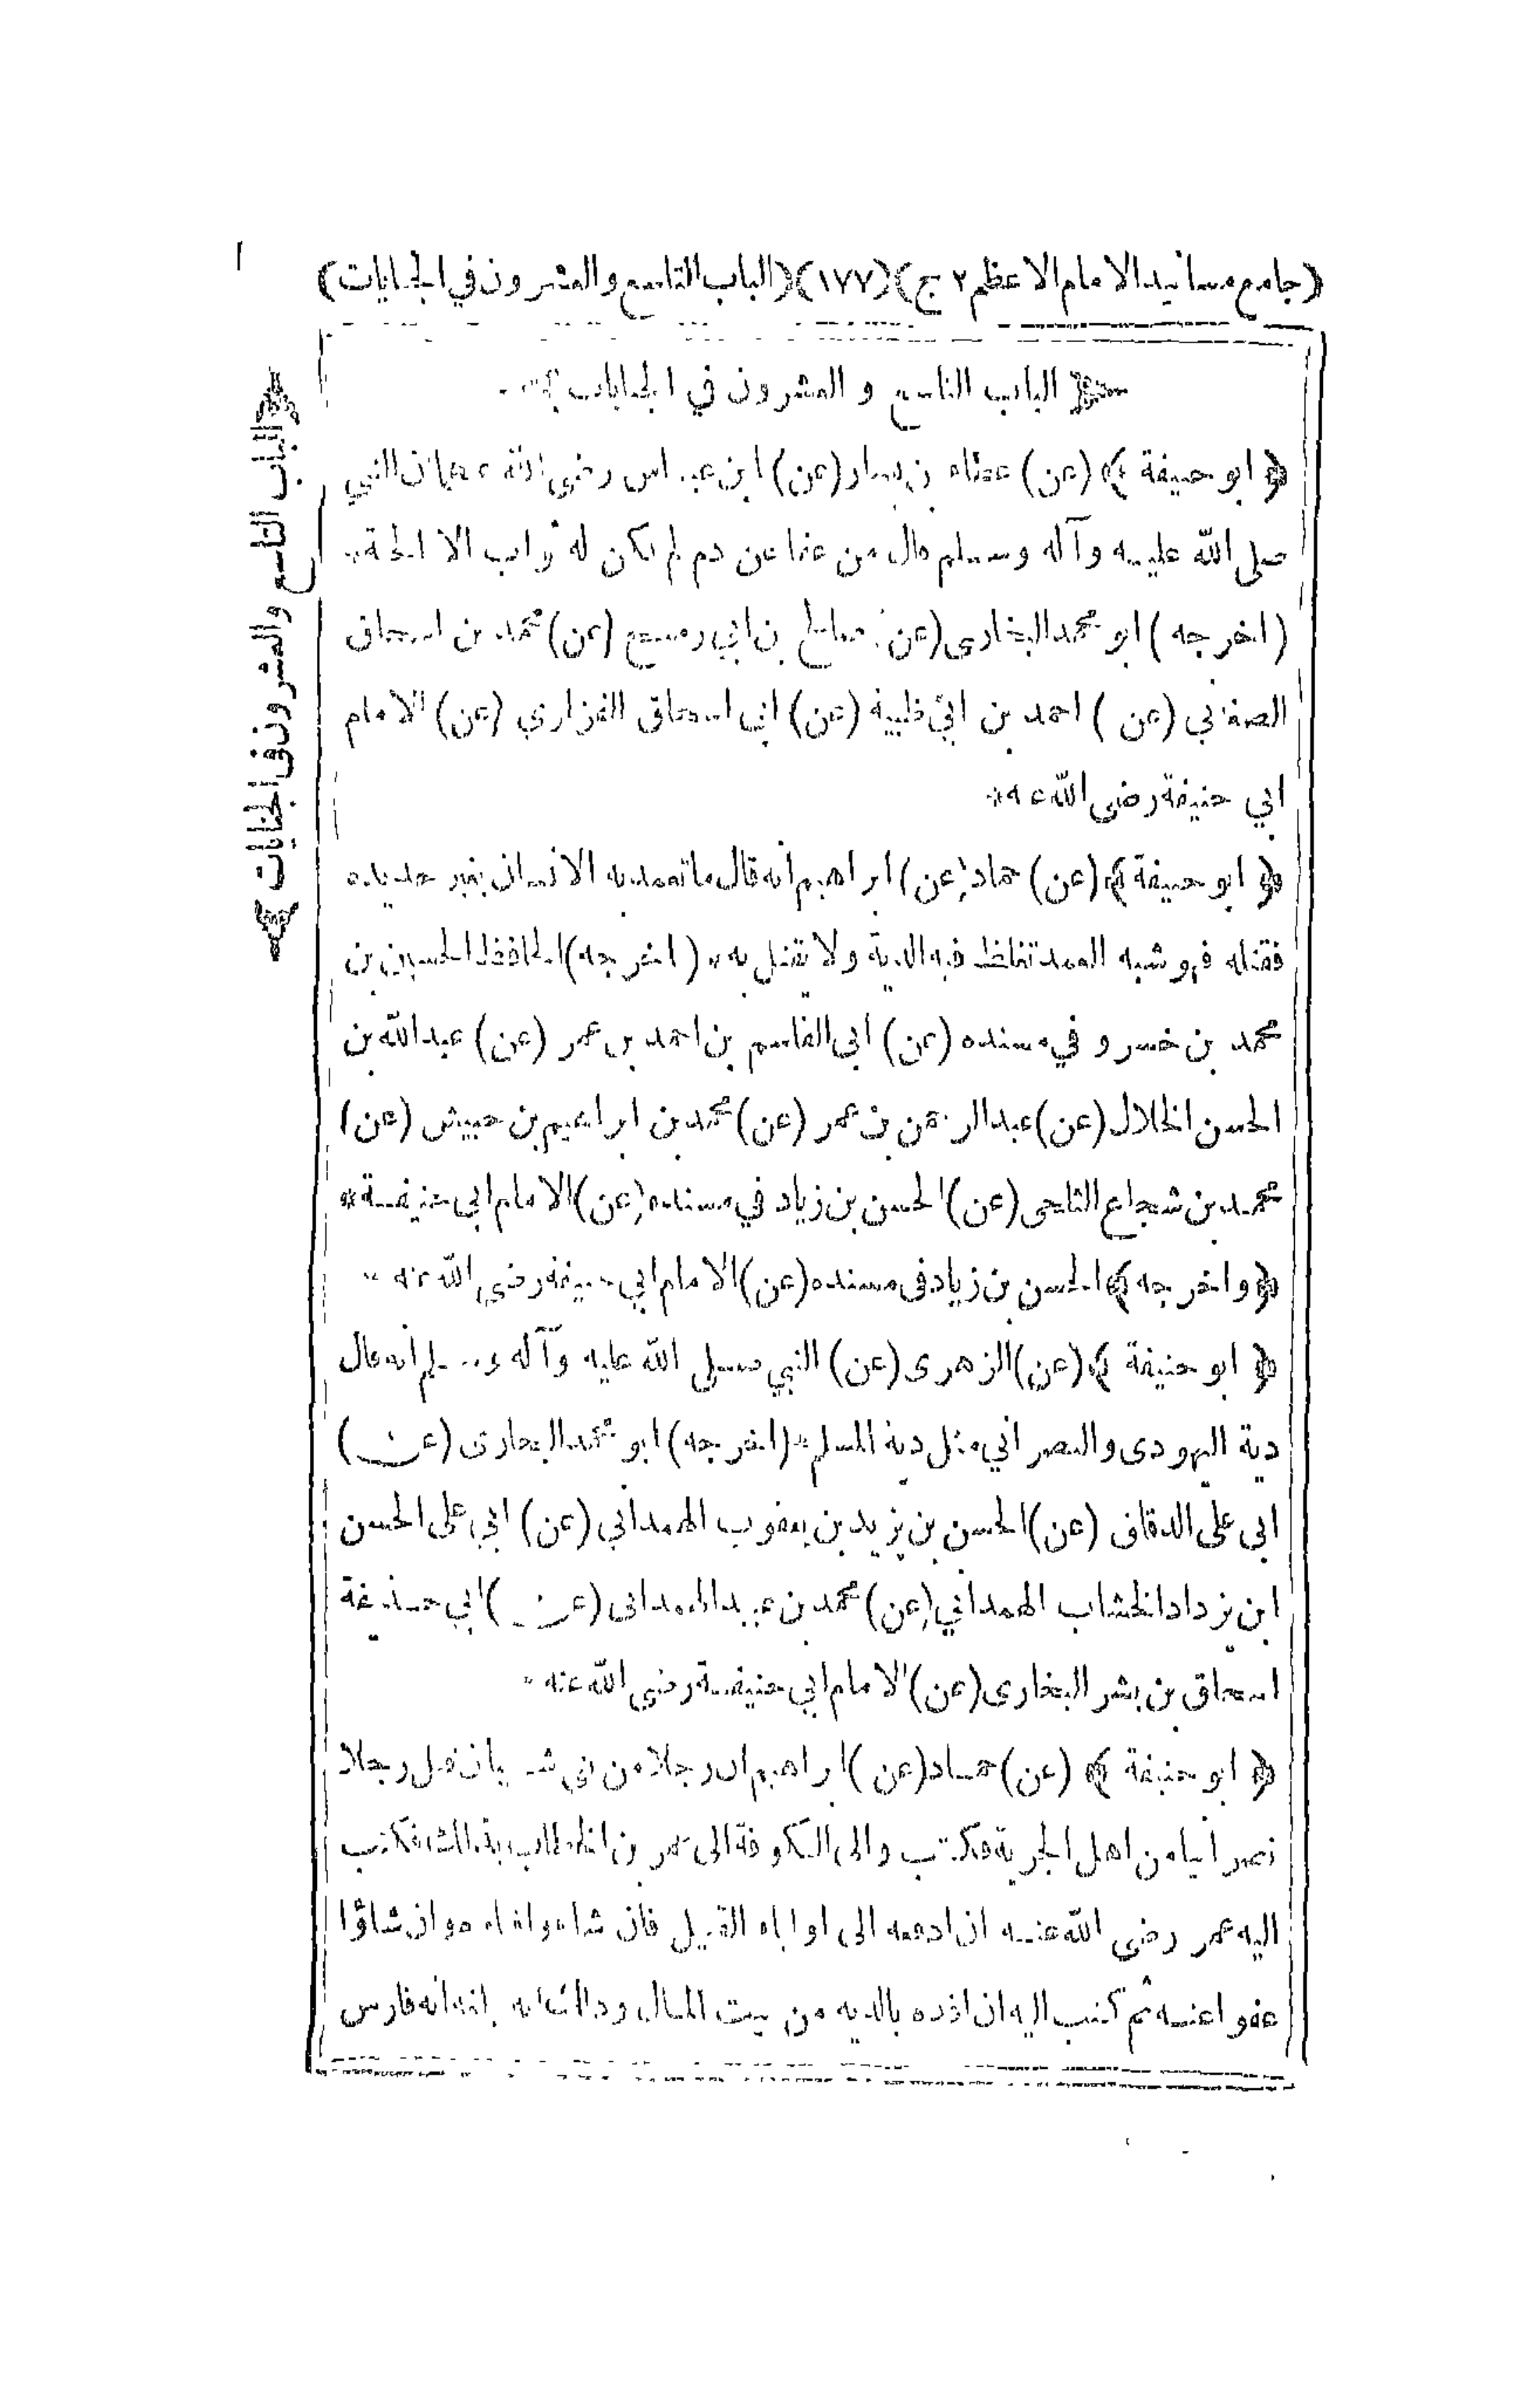 (جامع مسانيد الامام الاعظم ٢ ج) (١٧٧) (الباب التاسع والعشرون في الجنايات)
الباب التاسع و العشرون في الجنايات
﴿ ابو حنيفة ﴾ (عن) عطاء بن يسار (عن) ابن عباس رضى الله عنهما ان النبي
صلى الله عليه وآله وسلم قال من عفا عن دم لم يكن له ثواب الا الجنة *
(اخرجه) ابو محمد البخارى (عن) صالح بن ابي رميح (عن) محمد بن اسحاق
الصغاني (عن) احمد بن ابي ظبية (عن) ابي اسحاق الفزاري (عن) الامام
ابي حنيفة رضى الله عنه *
﴿ ابو حنيفة ﴾ (عن) حماد (عن) ابراهيم انه قال ما تعمد به الانسان بغير حديدة
فقتله فهو شبه العمد تغلظ فيه الدية ولا يقتل به * (اخرجه) الحافظ الحسين بن
محمد بن خسرو في مسنده (عن) ابى القاسم بن احمد بن عمر (عن) عبد الله بن
الحسن الخلال (عن) عبد الرحمن بن عمر (عن) محمد بن ابراهيم بن حبيش (عن)
محمد بن شجاع الثلجى (عن) الحسن بن زياد في مسنده (عن) الامام ابى حنيفة *
﴿ واخرجه ﴾ الحسن بن زياد فى مسنده (عن) الامام ابي حنيفة رضي الله عنه *
﴿ ابو حنيفة ﴾ (عن) الزهرى (عن) النبي صلى الله عليه وآله وسلم انه قال
دية اليهودى والنصراني مثل دية المسلم * (اخرجه) ابو محمد البخارى (عن)
ابى على الدقاق (عن) الحسن بن يزيد بن يعقوب الهمداني (عن) ابي على الحسن
ابن يزداد الخشاب الهمداني (عن) محمد بن عبيد الهمدانى (عن) ابي حذيفة
اسحاق بن بشر البخارى (عن) الامام ابي حنيفة رضى الله عنه *
﴿ ابو حنيفة ﴾ (عن) حماد (عن) ابراهيم ان رجلا من بني شيبان قتل رجلا
نصرانيا من اهل الجزية فكتب والى الكوفة الى عمر بن الخطاب بذلك فكتب
اليه عمر رضى الله عنه ان ادفعه الى اولياء القتيل فان شاءوا ان شاؤا
عفوا عنه ثم كتب اليه ان افده بالدية من بيت المال وذلك انه بلغه انه فارس
﴿الباب التاسع والعشرون فى الجنايات﴾